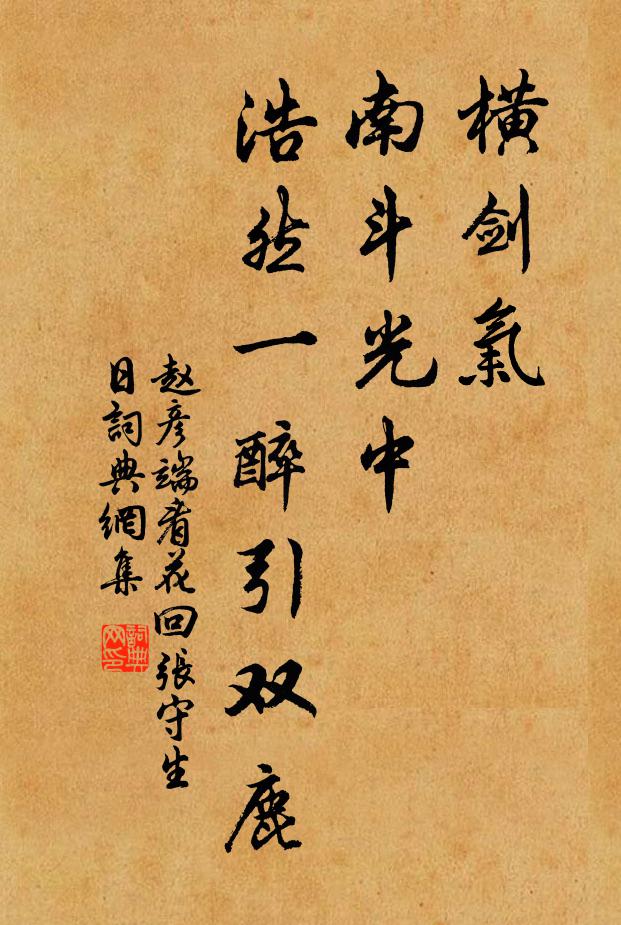 橫剑氣
南斗光中
浩然一醉引双鹿
赵彦端看花回張守生
日詞典網集
詞典网印